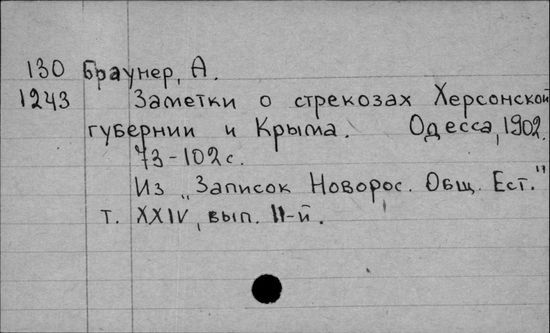 130 Браунер, А.
1243 Заметки о стрекозах Херсонской
губернии и Крыма. Одесса, 1902.
73-102 с.
Из „Записок Новорос. Общ. Ест."
т. XXIV, вып. II-й.